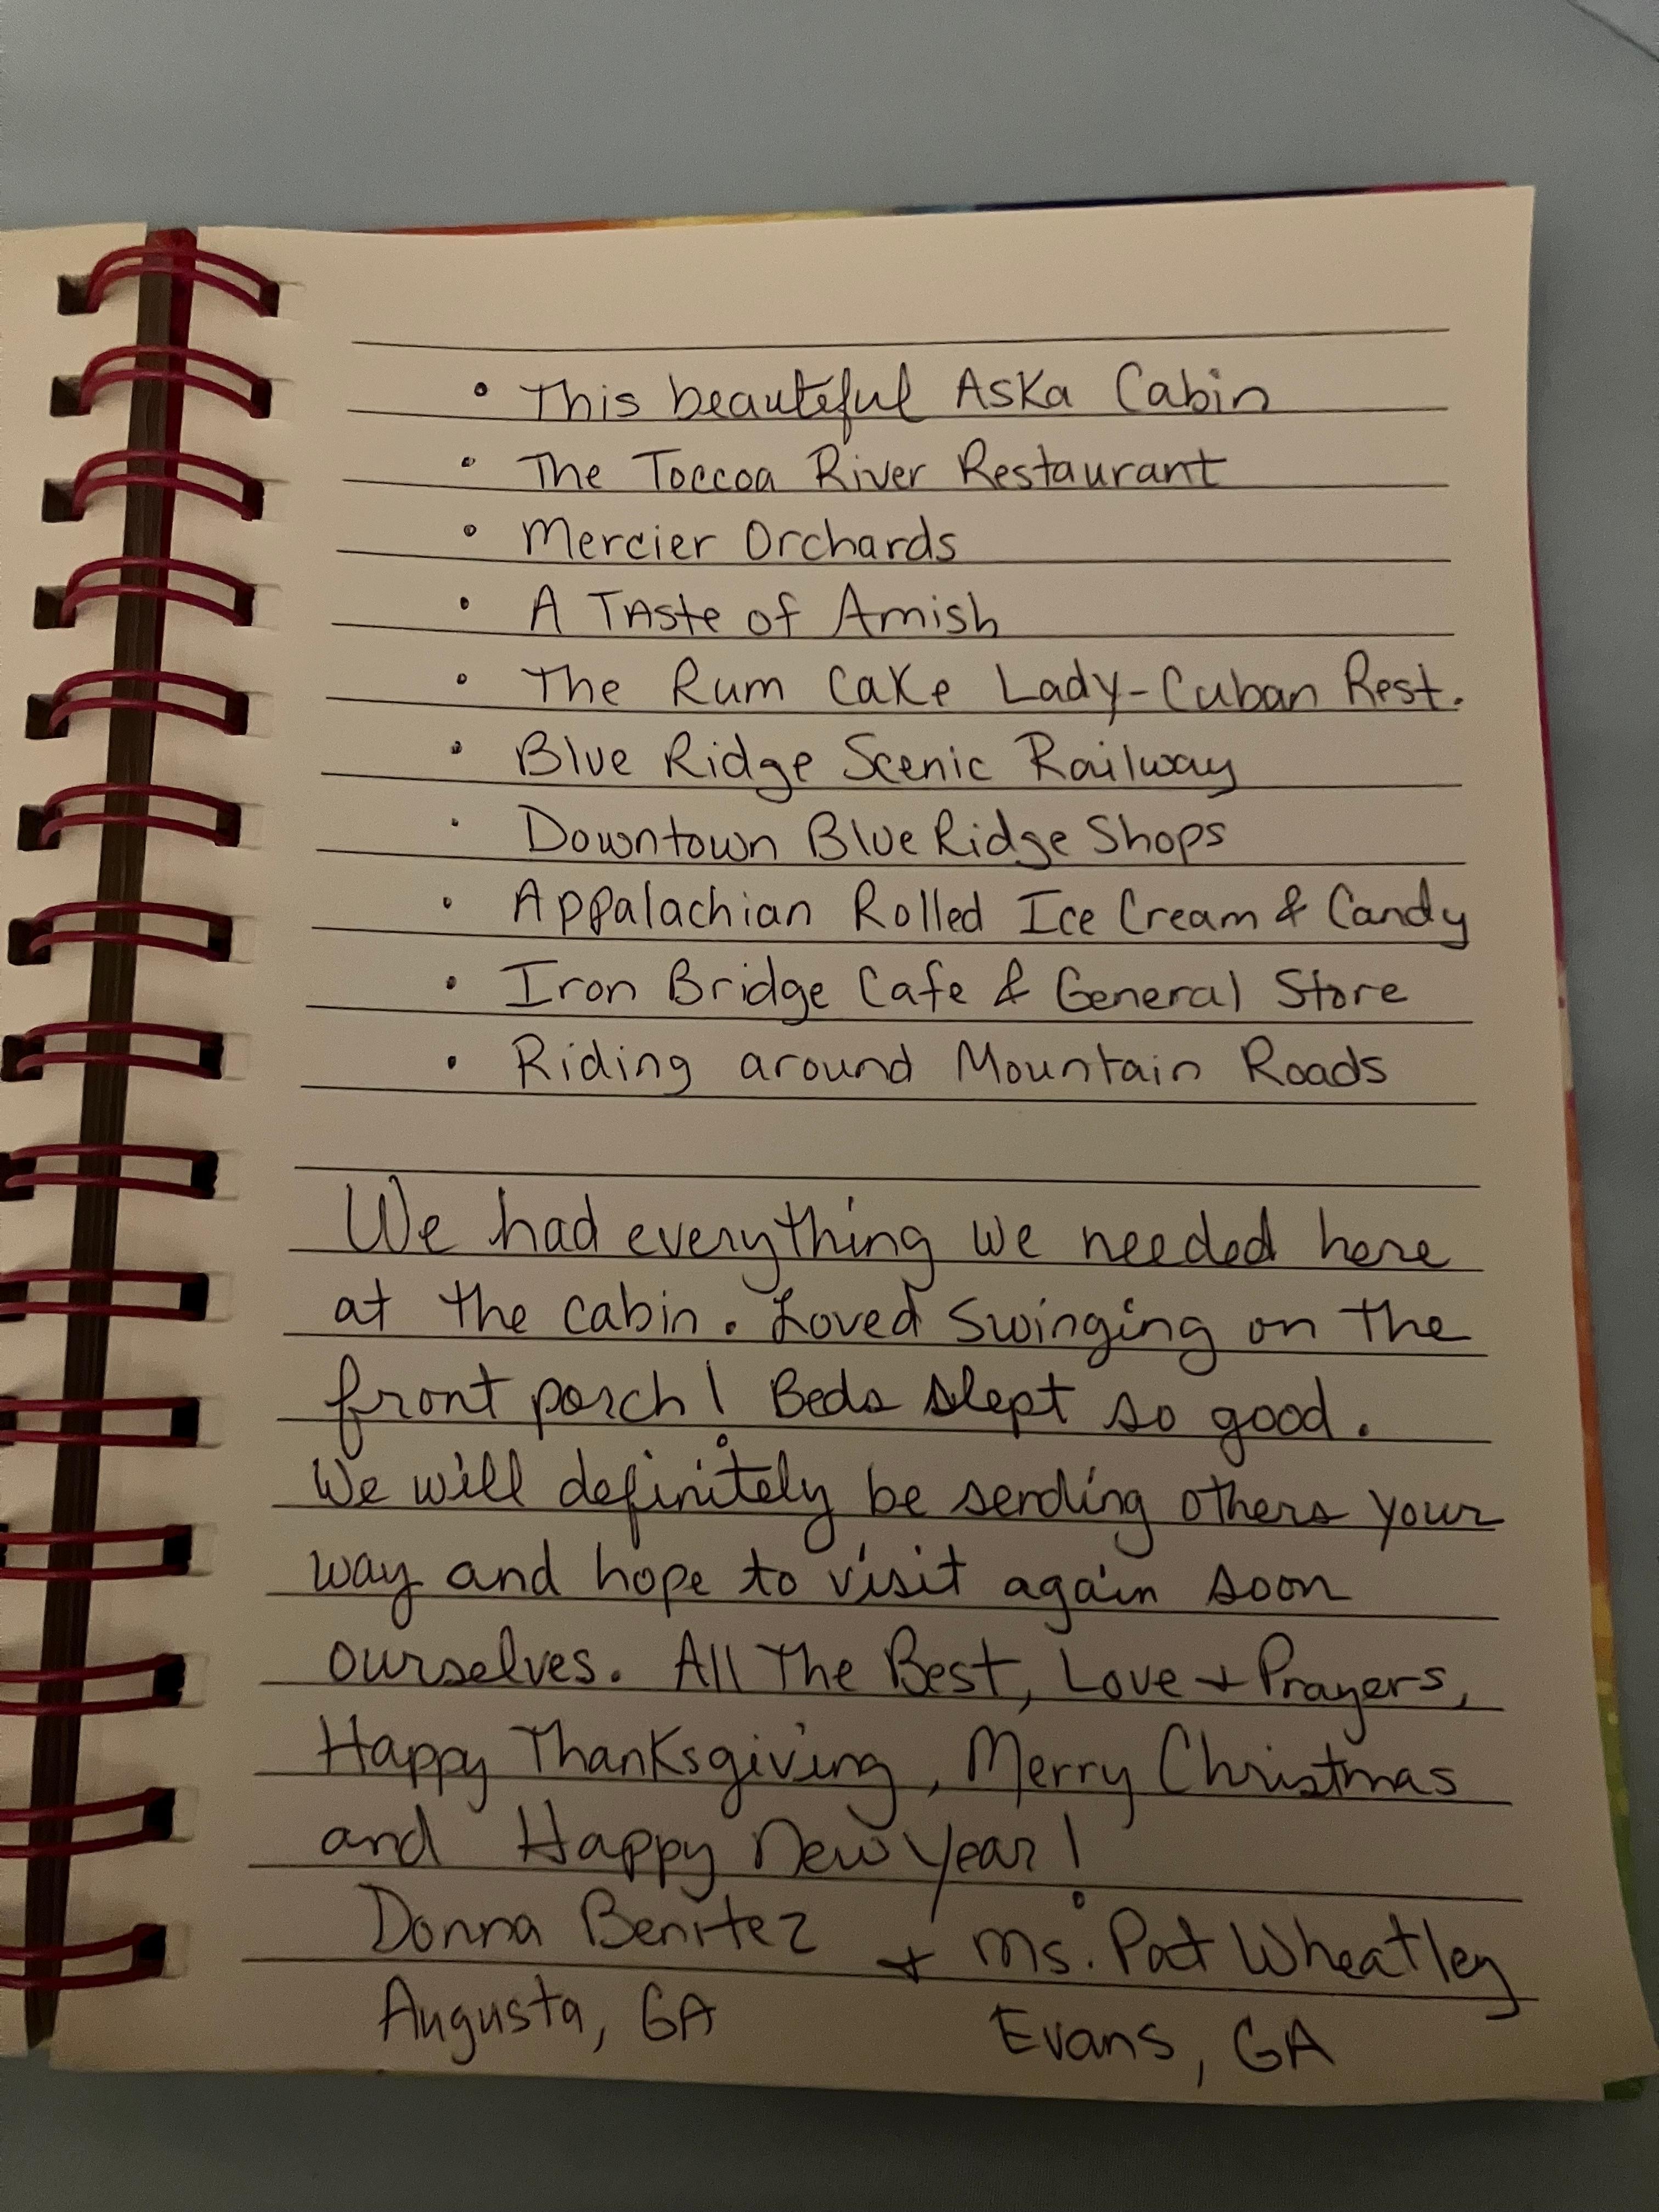 • This beautiful Aska Cabin
• The Toccoa River Restaurant
• Mercier Orchards
• A Taste of Amish
• The Rum Cake Lady-Cuban Rest.
• Blue Ridge Scenic Railway
• Downtown Blue Ridge Shops
• Appalachian Rolled Ice Cream & Candy
• Iron Bridge Cafe & General Store
• Riding around Mountain Roads
We had everything we needed here
at the cabin. Loved swinging on the
front porch! Beds slept so good.
We will definitely be sending others your
way and hope to visit again soon
ourselves. All The Best, Love + Prayers,
Happy Thanksgiving, Merry Christmas
and Happy New Year!
Donna Benitez + Ms. Pat Wheatley
Augusta, GA Evans, GA